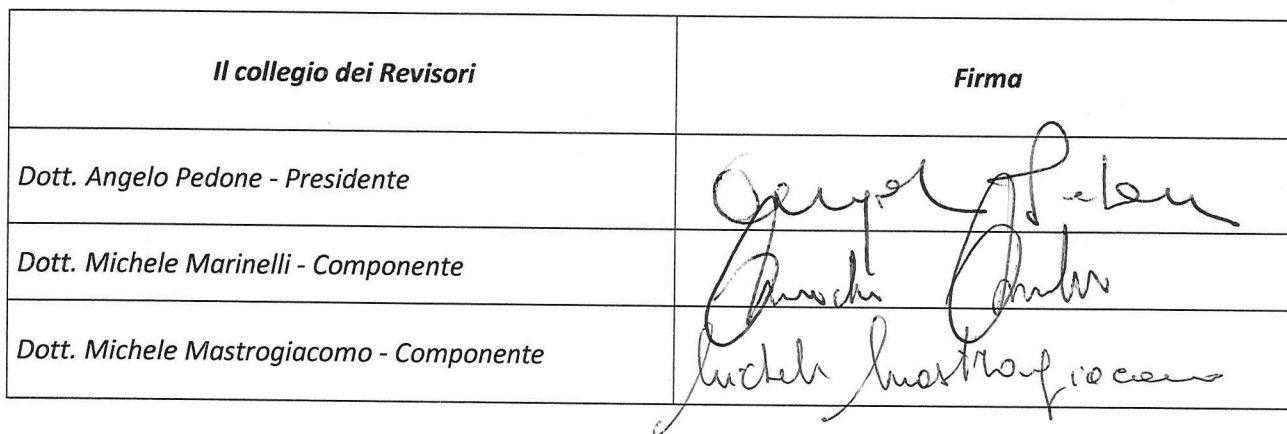 Il collegio dei Revisori
Firma
Dott. Angelo Pedone - Presidente
Dott. Michele Marinelli - Componente
Dott. Michele Mastrogiacomo - Componente
Michele Mastrogiacomo